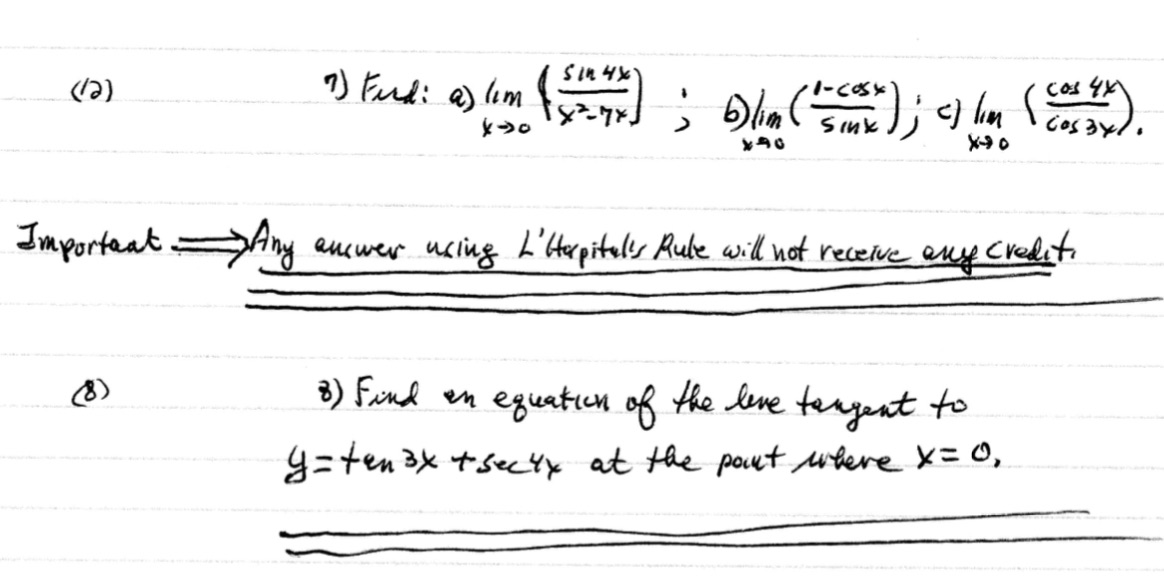 (12) 7) Find: a) lim x→0 (sin 4x / x²-7x) ; b) lim x→0 (1-cosx / sinx) ; c) lim x→0 (cos 4x / cos 3x).
Important ⟹ Any answer using L'Hospital's Rule will not receive any credit.
(8) 8) Find an equation of the line tangent to
y = tan 3x + sec 4x at the point where x = 0.